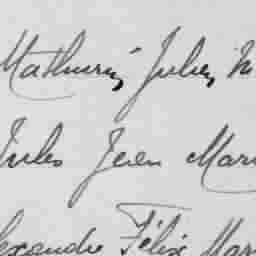 Mathurin Julien M
Jules Jean Mari
lexandre Félix Mar